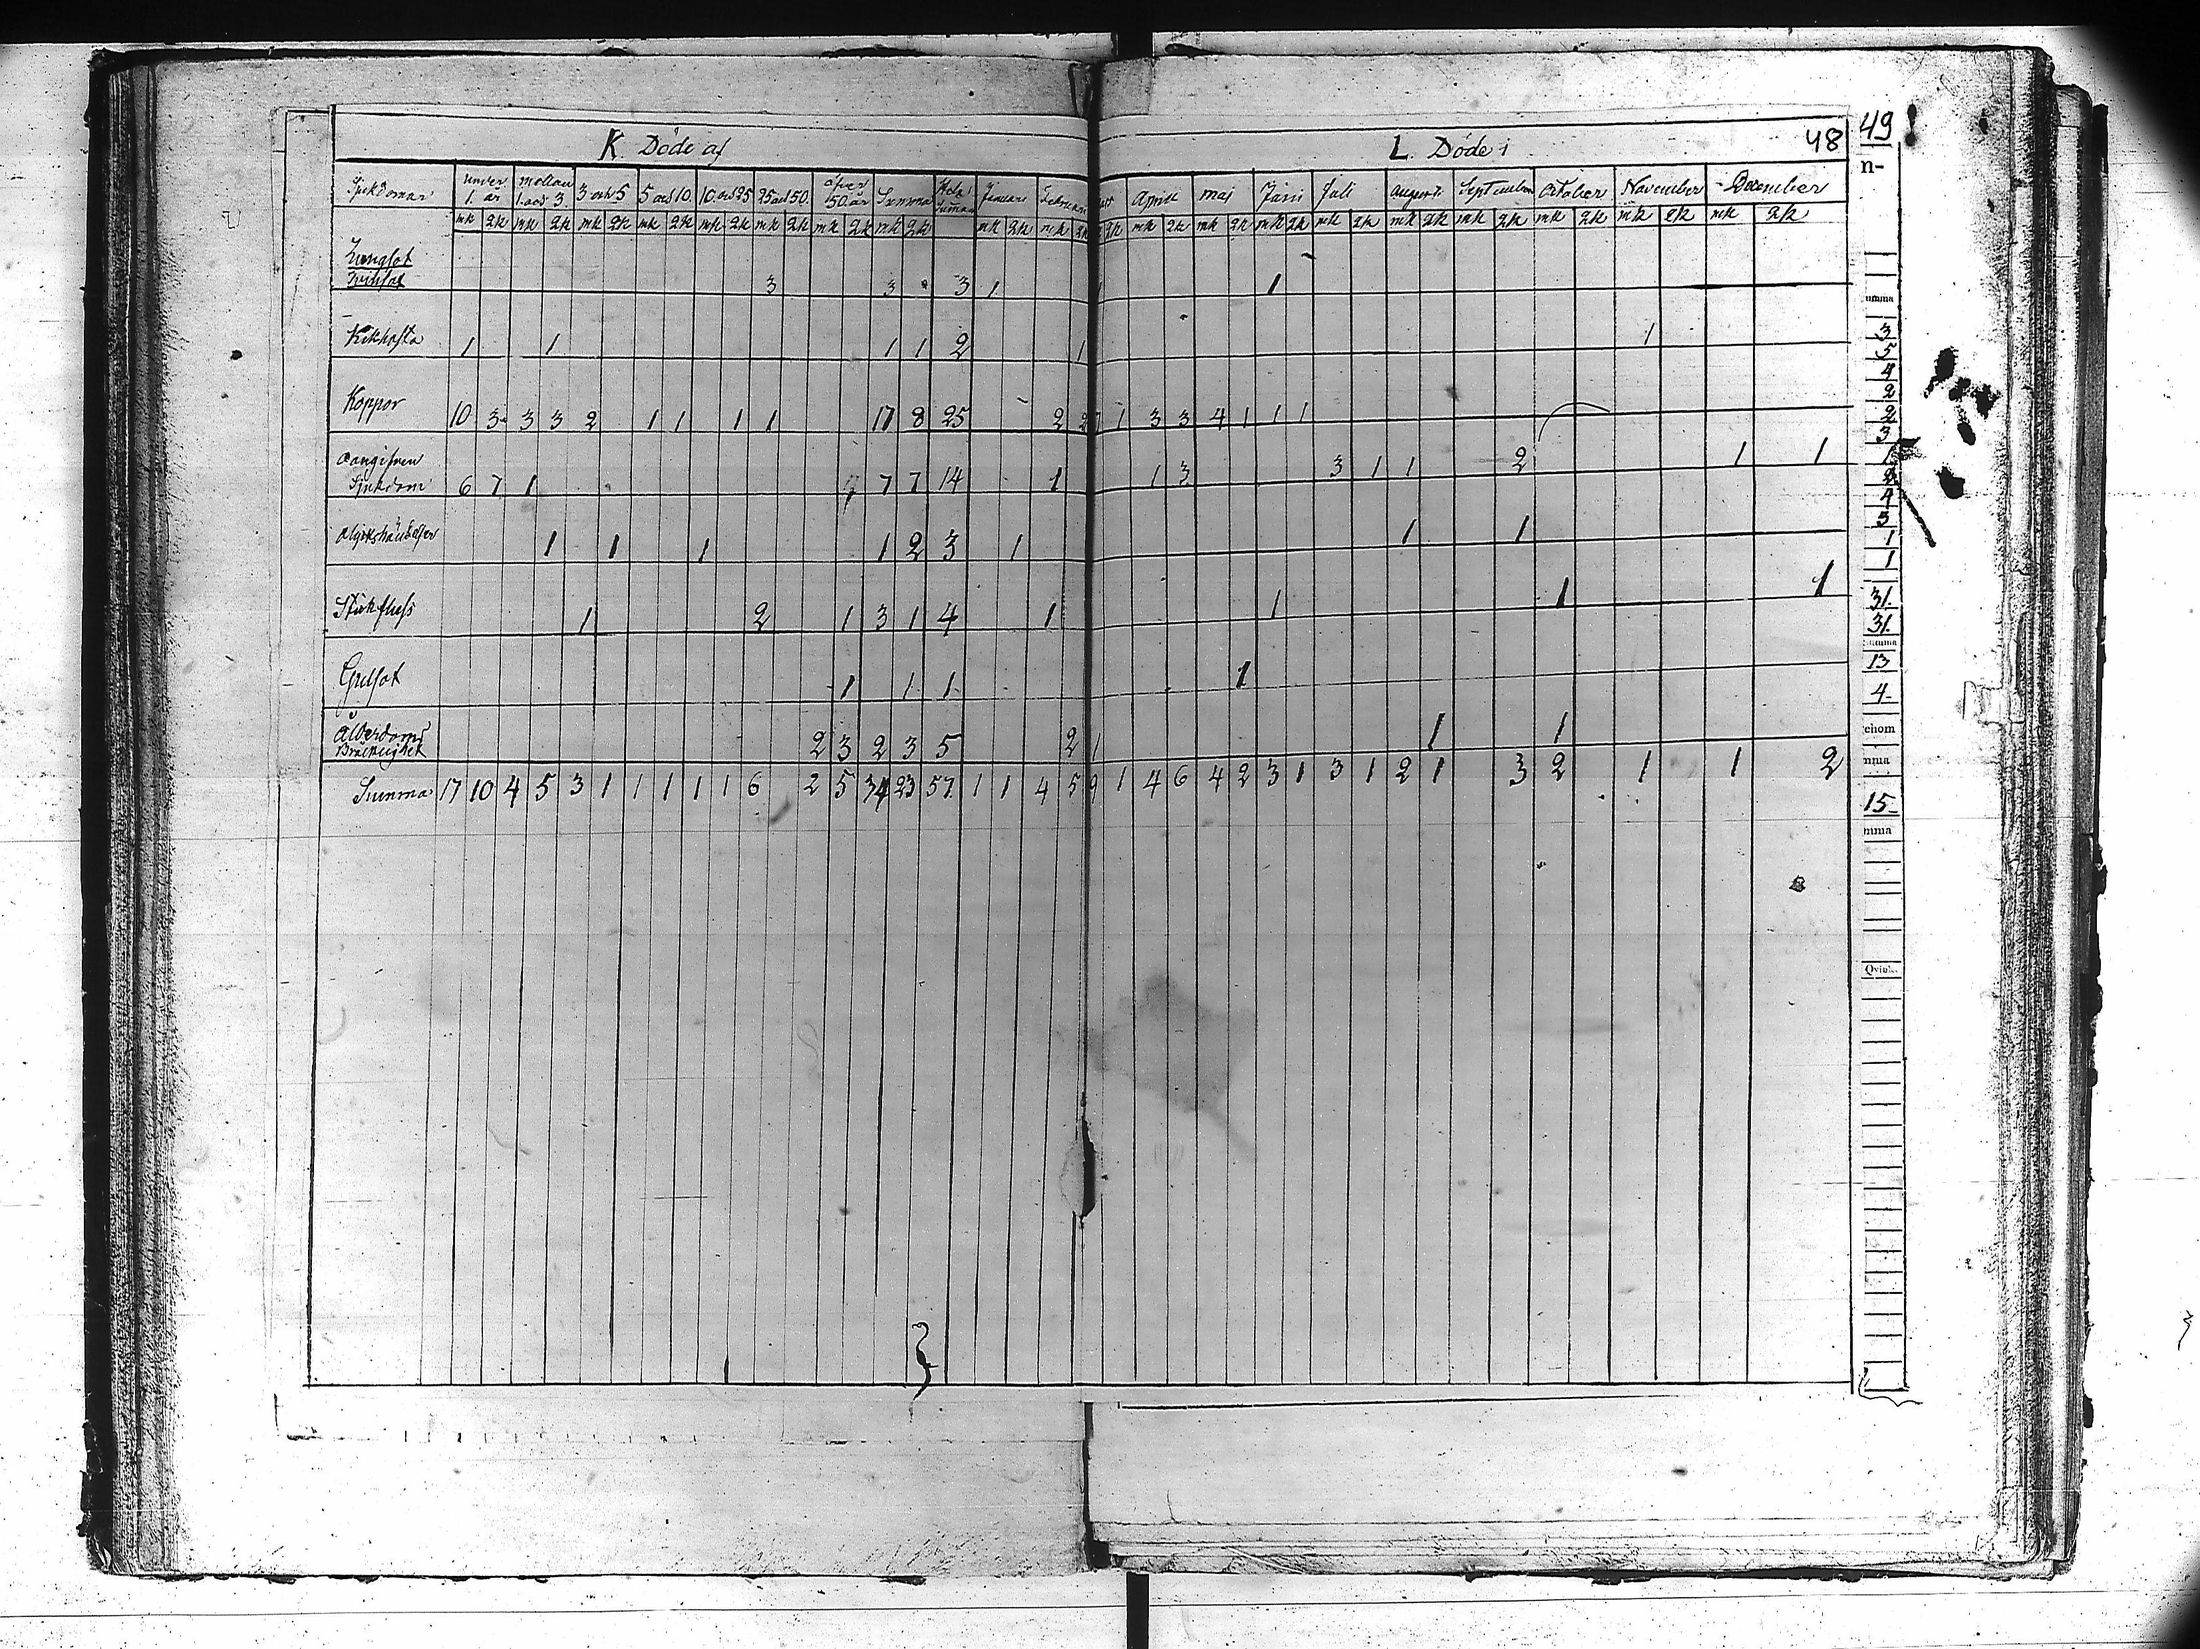 K. Döde af
L. Döde i 48 49
n-
Sjukdomar under 1. år mellan 1. och 3. 3 och 5 5 och 10. 10. och 25 25 och 50. öfver 50. år Summa Hela Summan Januari Februari April maj Juni Juli augusti September October November December
mk qk mk qk mk qk mk qk mk qk mk qk mk qk mk qk mk qk mk qk qk mk qk mk qk mk qk mk qk mk qk mk qk mk qk mk qk mk qk
Lungsot
3 3 3 1 1
Kikhosta 1 1 1 1 2 1 1
Koppor 10 3 3 3 2 1 1 1 1 17 8 25 2 1 3 3 4 1 1 1
oangifven
Sjukdom 6 7 1 7 7 14 1 1 3 3 1 1 2 1 1
olyckshändelser 1 1 1 1 2 3 1 1 1
Stickfluss 1 2 1 3 1 4 1 1 1 1
Gulsot 1 1 1 1
Ålderdoms
Bräcklighet 2 3 2 3 5 2 1 1 1
Summa 17 10 4 5 3 1 1 1 1 1 6 2 5 34 23 57. 1 1 4 5 9 1 4 6 4 2 3 1 3 1 2 1 3 2 1 1 2
umma
3
5
4
2
2
3
1
2
4
3
1
1
31.
31.
umma
13
4-
ehom
mma
15-
mma
Qvink.